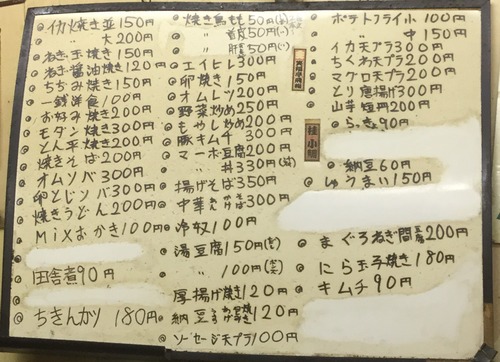 イカ焼き並150円
〃 大200円
ねぎ玉焼き150円
ねぎ醤油焼き120円
ちぢみ焼き150円
一銭洋食100円
お好み焼き200円
モダン焼き300円
とん平焼き200円
焼きそば200円
オムソバ300円
卵とじソバ300円
焼きうどん200円
MIXおかき100円
田舎煮90円
ちきんカツ180円
焼き鳥 50円
〃 50円
〃 肝 50円
エイヒレ300円
卵焼き150円
オムレツ200円
野菜炒め250円
もやし炒め200円
豚キムチ300円
マーボ豆腐200円
〃 丼330円
揚げそば350円
中華 そば300円
冷奴100円
湯豆腐150円
〃 100円
厚揚げ焼き120円
納豆 焼き120円
ソーセージ天プラ100円
ポテトフライ小100円
〃 中150円
イカ天プラ300円
ちくわ天プラ200円
マグロ天プラ200円
とり唐揚げ300円
山芋短冊200円
らっきょ90円
納豆60円
しゅうまい150円
まぐろねぎ間 200円
にら玉子焼き180円
キムチ90円
桂小